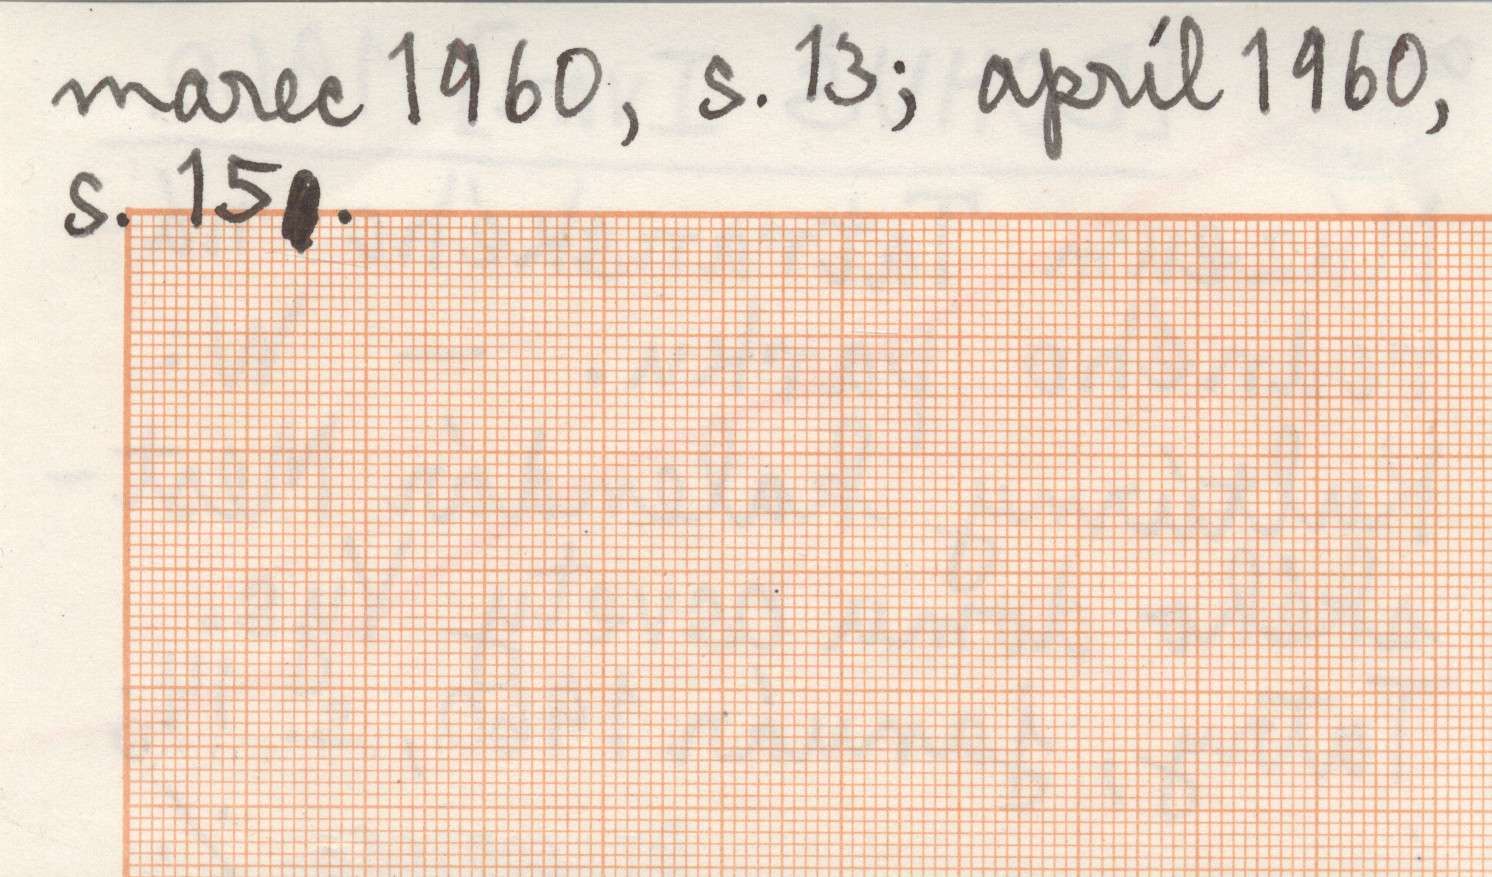 marec 1960, s. 13; apríl 1960,
s. 15.